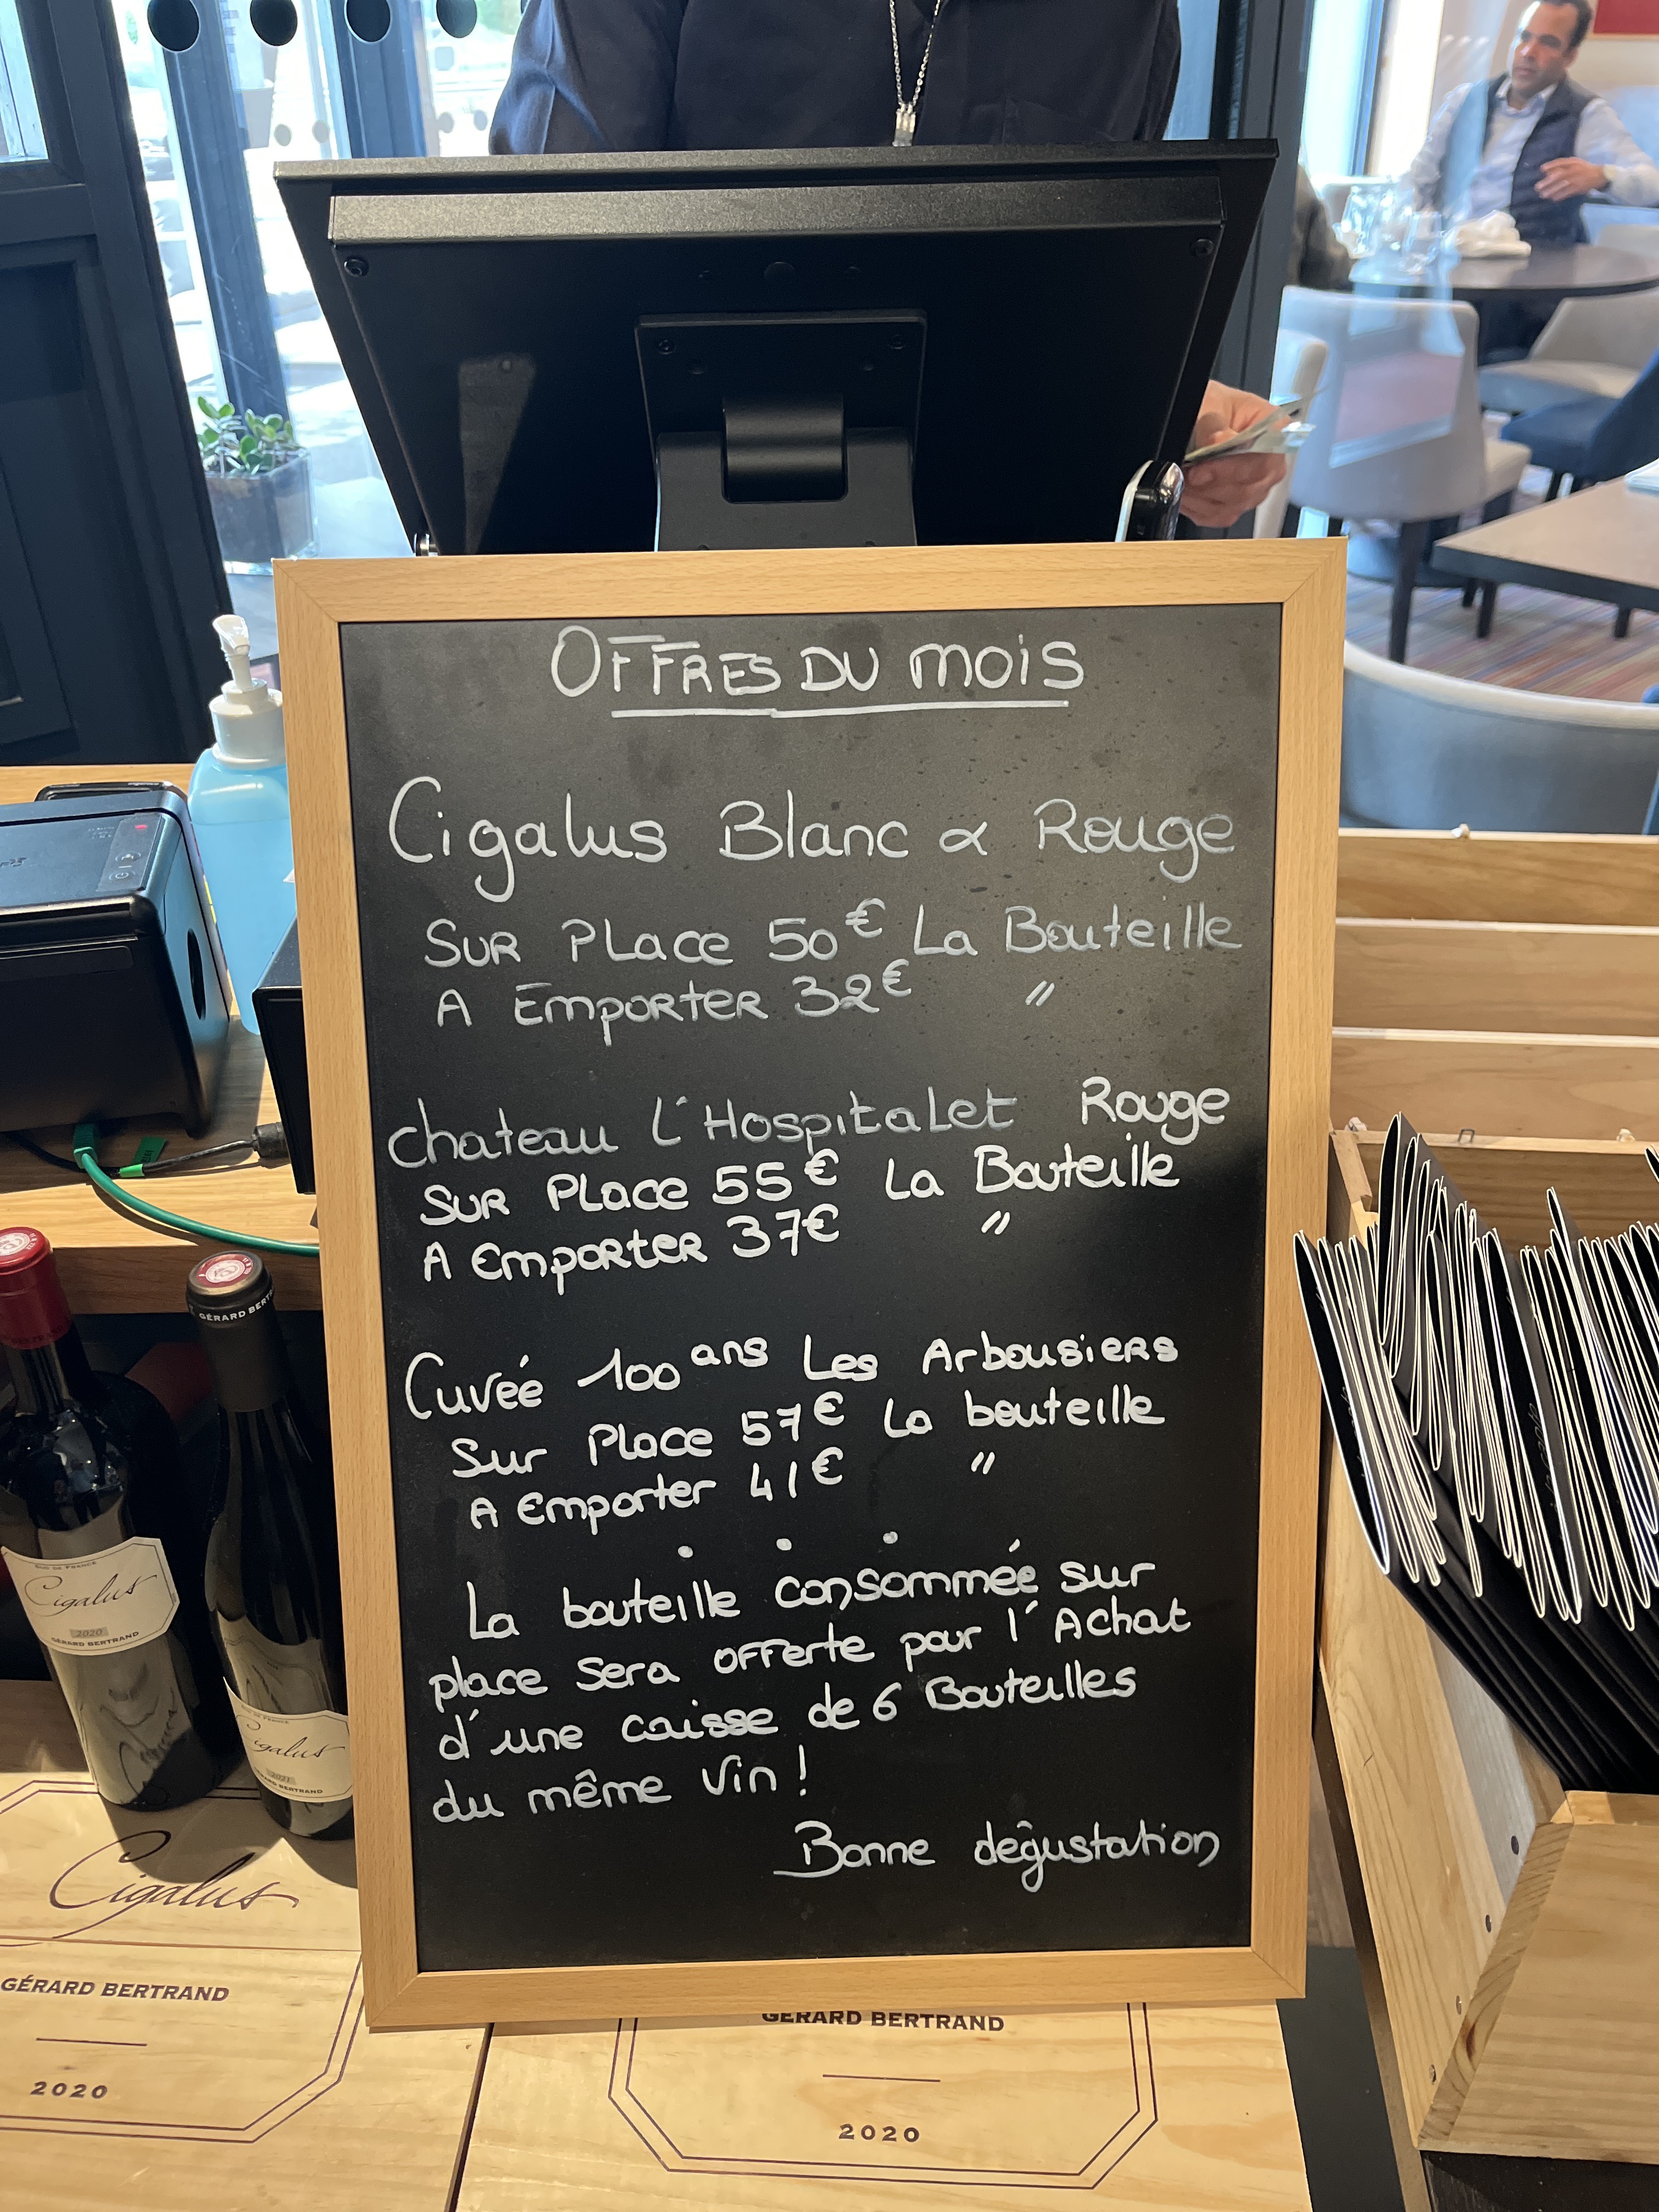 OFFRES DU MOIS
Cigalus Blanc & Rouge
SUR PLace 50€ La Bouteille
A EmpoRteR 32€ "
chateau l'HospitaLet Rouge
SUR PLace 55€ La Bouteille
A EmpoRteR 37€ "
Cuvée 100 ans Les ArbousiERs
Sur Place 57€ La bouteille
A Emporter 41€ "
. . .
La bouteille consommée sur
place sera offerte pour l'Achat
d'une caisse de 6 Bouteilles
du même Vin !
Bonne dégustation
GÉRARD BERT
SUD DE FRANCE
Cigalus
2020
GÉRARD BERTRAND
Cigalus
2021
GÉRARD BERTRAND
Cigalus
GÉRARD BERTRAND
2020
GÉRARD BERTRAND
2020